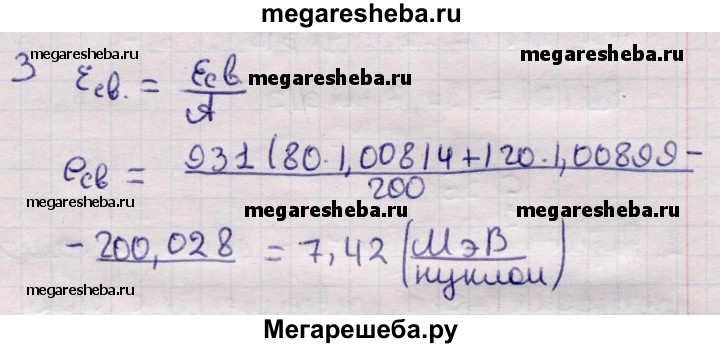 megaresheba.ru
3 megaresheba.ru
Ɛсв. = Ɛсв/A megaresheba.ru
eсв = 931(80·1,00814+120·1,00899-/200
megaresheba.ru megaresheba.ru megaresheba.ru
- 200,028 = 7,42 (МэВ/нуклон)
megaresheba.ru megaresheba.ru
Мегарешеба.ру